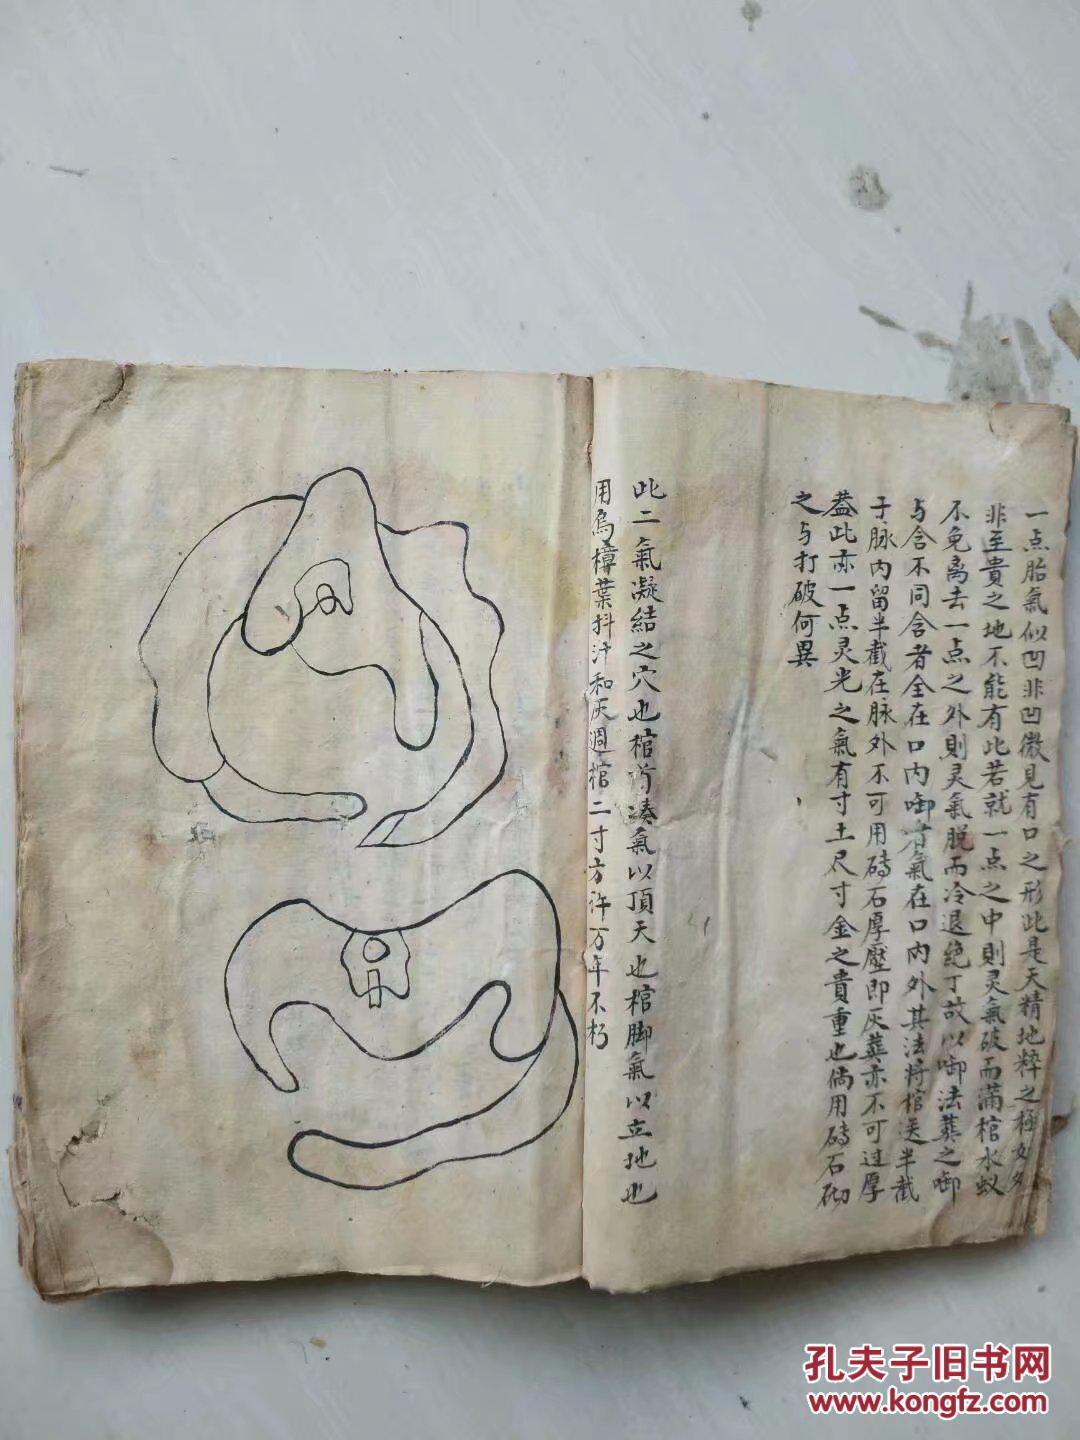 一点胎氣似凹非凹微見有口之形此是天精地粹之極如
非至貴之地不能有此若就一点之中則灵氣破而满棺水蚁
不免离去一点之外則灵氣脱而冷退绝丁故以啣法葬之啣
与含不同含者全在口内啣者氣在口内外其法将棺送半截
于脉内留半截在脉外不可用磚石厚壓即灰葬亦不可过厚
葢此亦一点灵光之氣有寸土尺寸金之貴重也倘用磚石砌
之与打破何異
此二氣凝結之穴也棺首湊氣以頂天也棺脚氣以立地也
用烏樟葉抖汁和灰週棺二寸方许万年不朽
孔夫子旧书网
www.kongfz.com